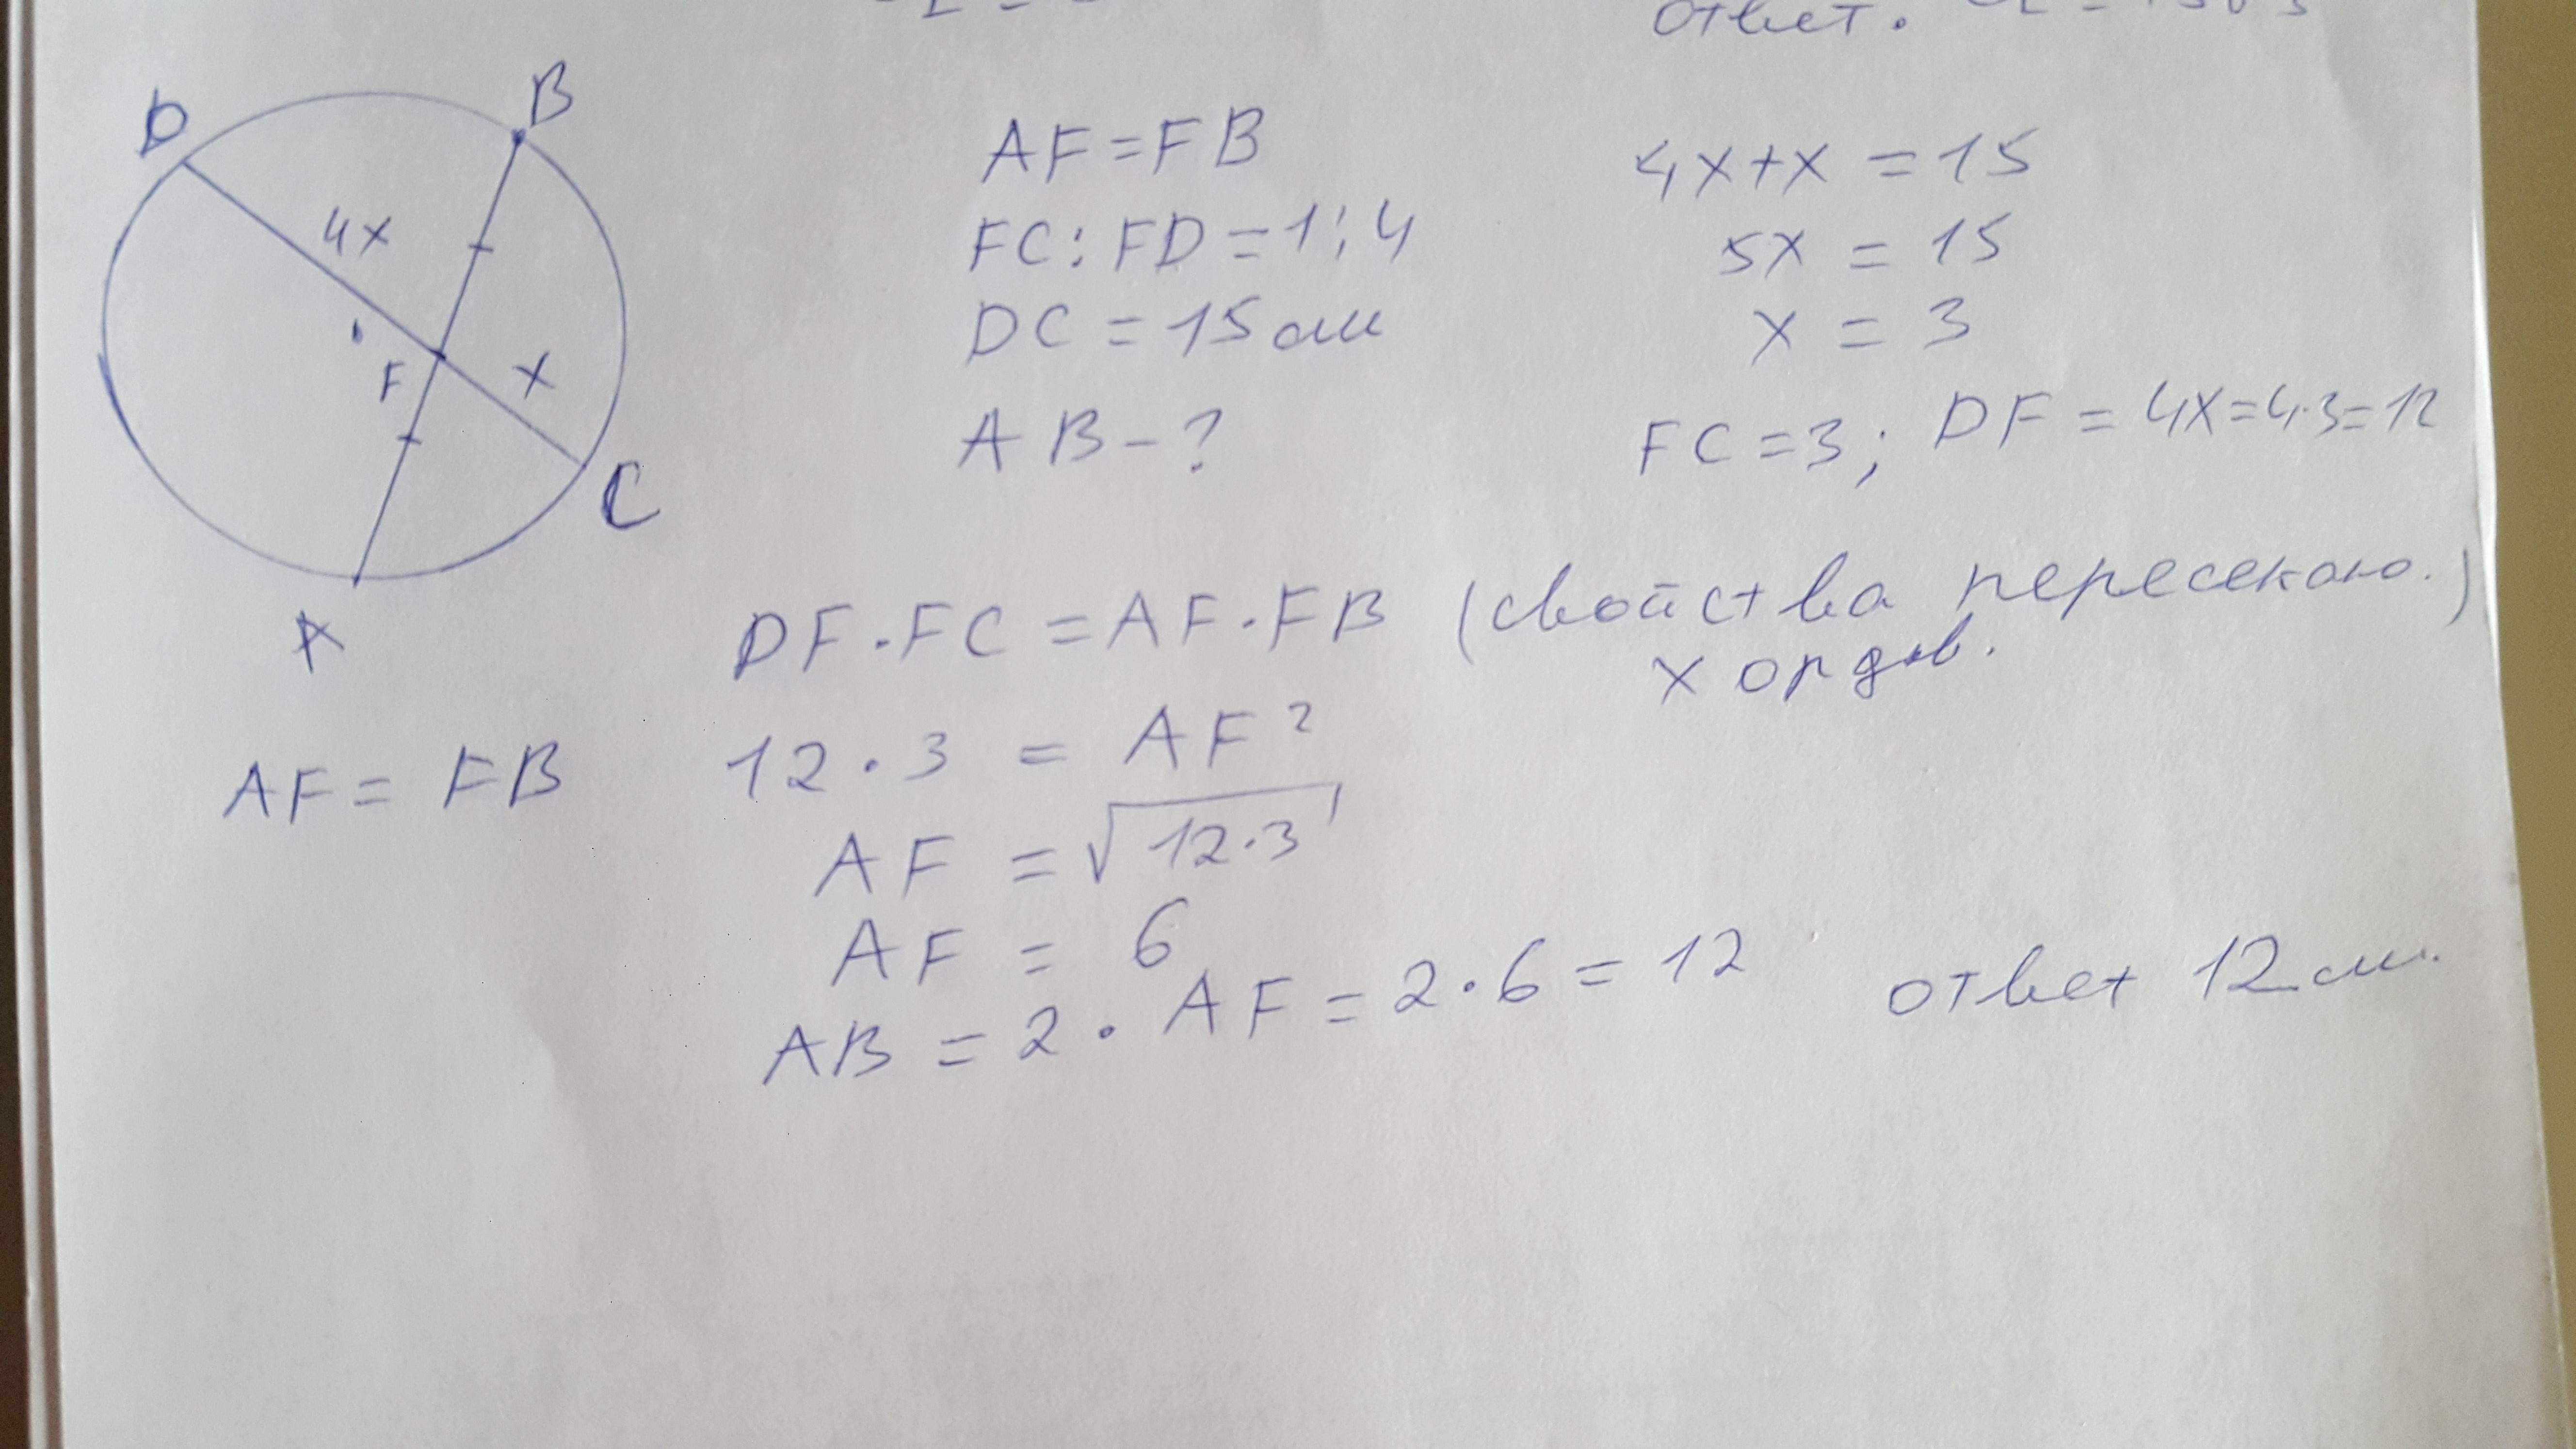 Ответ.
D
B
4x
F
x
C
A
AF = FB
FC : FD = 1 : 4
DC = 15 см
AB - ?
4x + x = 15
5x = 15
x = 3
FC = 3; DF = 4x = 4·3 = 12
DF · FC = AF · FB (свойства пересекаю.)
хордов.
AF = FB
12 · 3 = AF²
AF = √12·3
AF = 6
AB = 2 · AF = 2 · 6 = 12
ответ 12 см.